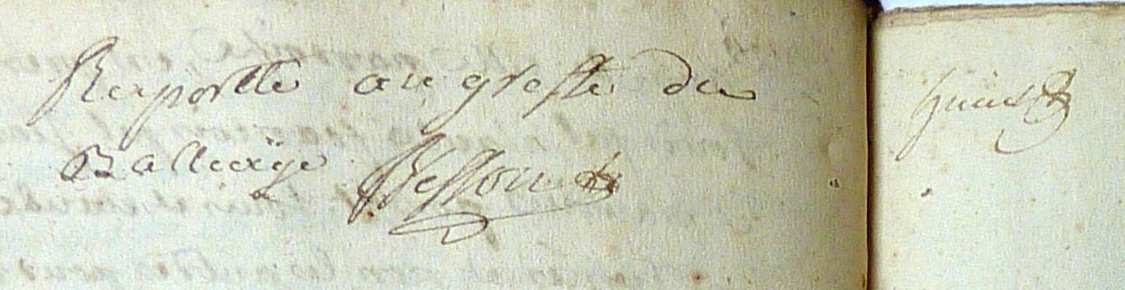 Raportté au greffe du
Bailliage Besson